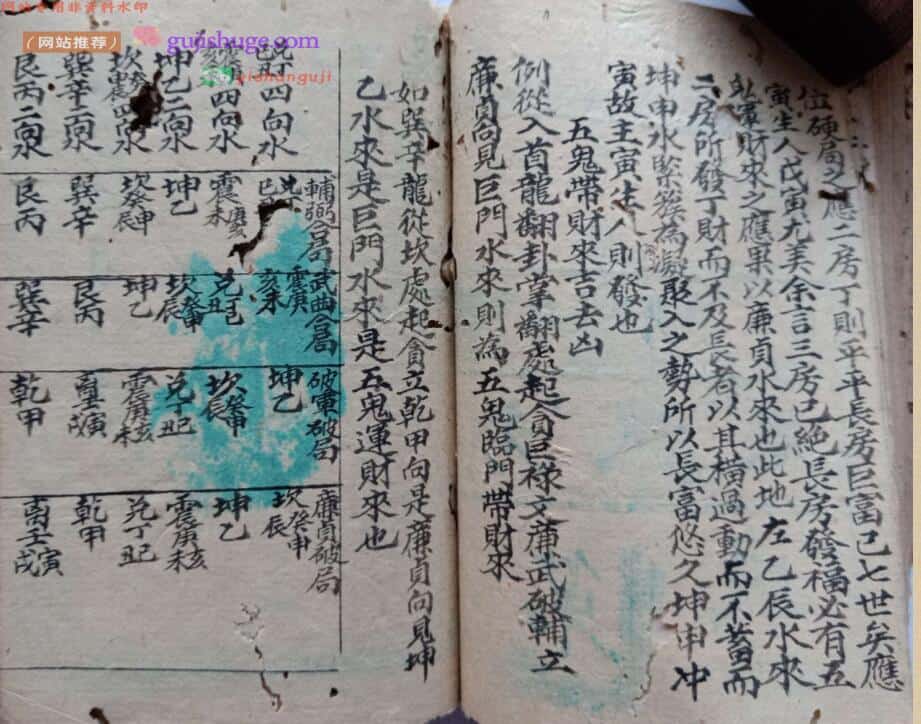 guishuge.com
（网站推荐）
二房丁則平平長房巨富已七世矣應
寅生人戊寅尤美余言三房已絕長房發福必有五
財來之應果以廉貞水來也此地左乙辰水來
二房所發丁財而不及長者以其橫過動而不蓄而
坤申水緊
聚入之勢所以長富悠久坤申冲
寅故主寅生人則發也
五鬼帶財來吉去凶
例從入首龍翻卦掌翻處起貪巨祿文廉武破輔立
廉貞向見巨門水來則為五鬼臨門帶財來
如巽辛龍從坎處起貪立乾甲向是廉貞向見坤
乙水來是巨門水來是五鬼運財來也
四向水
四向水
坤乙二向水
四向水
巽辛二向水
艮丙二向水
輔弼合局
震庚未
坤乙
坎癸申辰
巽辛
艮丙
武曲合局
震庚亥未
兌丁巳丑
坎癸申辰
坤乙
艮丙
巽辛
破軍破局
坤乙
坎癸申辰
兌丁巳丑
震庚亥未
離壬寅戌
乾甲
廉貞破局
坎癸申辰
坤乙
震庚亥未
兌丁巳丑
乾甲
離壬寅戌